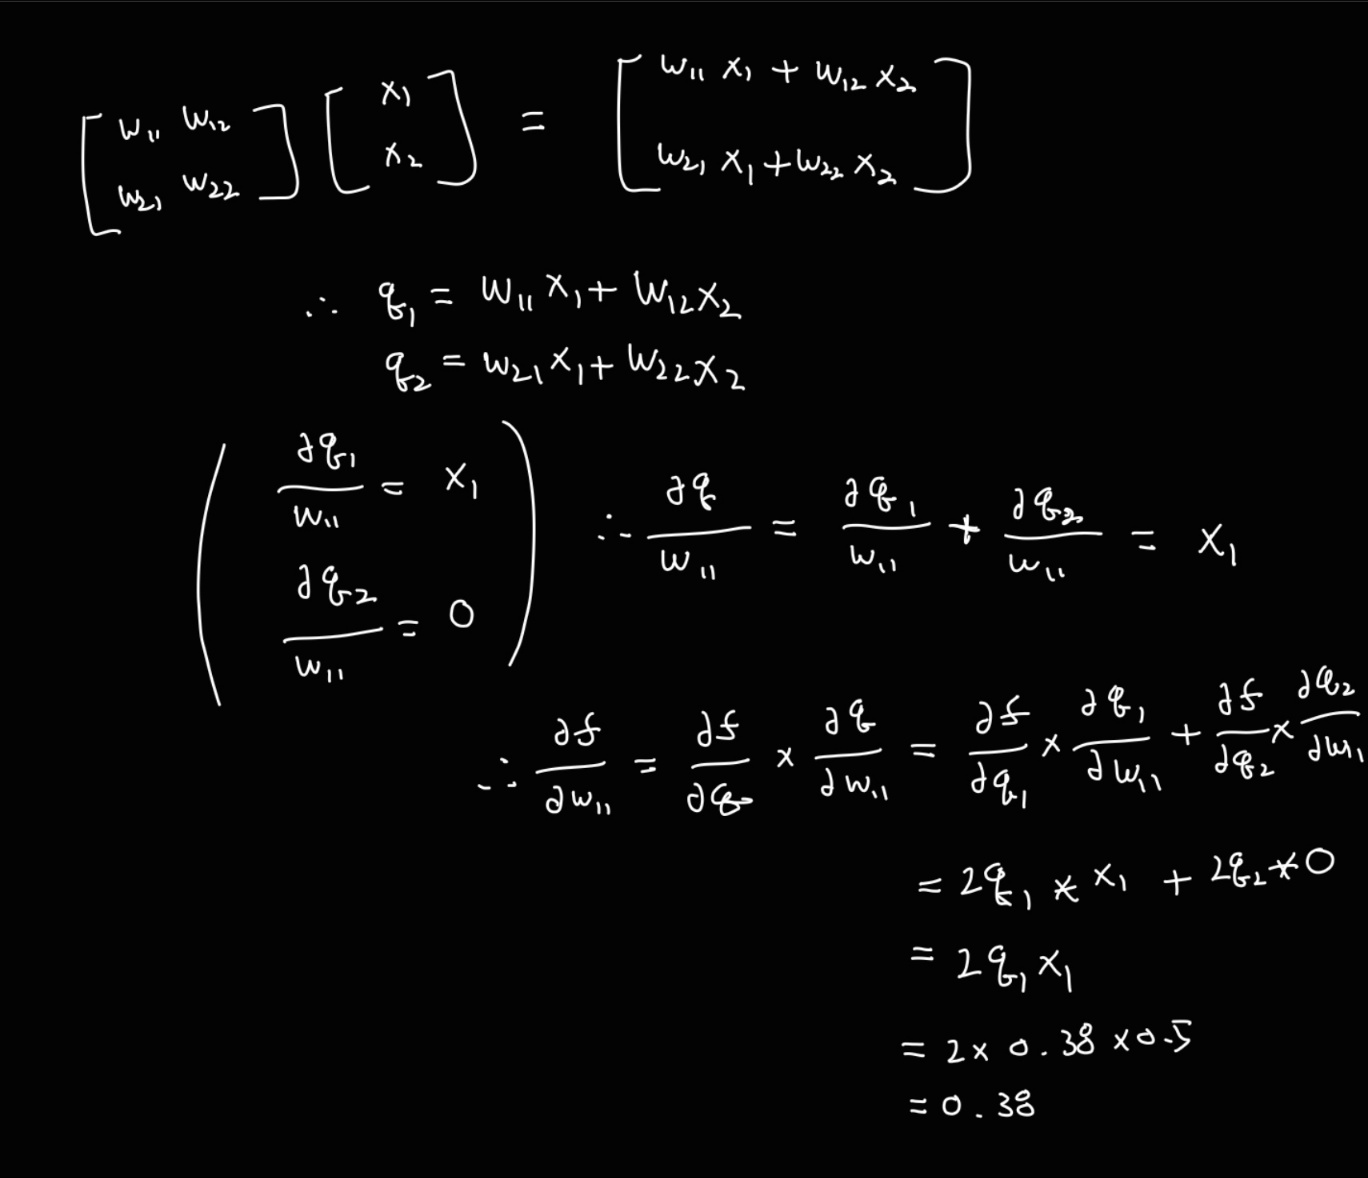 [ w₁₁ w₁₂ ; w₂₁ w₂₂ ] [ x₁ ; x₂ ] = [ w₁₁ x₁ + w₁₂ x₂ ; w₂₁ x₁ + w₂₂ x₂ ]
∴ q₁ = w₁₁ x₁ + w₁₂ x₂
q₂ = w₂₁ x₁ + w₂₂ x₂
( ∂q₁ / w₁₁ = x₁ ; ∂q₂ / w₁₁ = 0 ) ∴ ∂q / w₁₁ = ∂q₁ / w₁₁ + ∂q₂ / w₁₁ = x₁
∴ ∂f / ∂w₁₁ = ∂f / ∂q × ∂q / ∂w₁₁ = ∂f / ∂q₁ × ∂q₁ / ∂w₁₁ + ∂f / ∂q₂ × ∂q₂ / ∂w₁₁
= 2q₁ * x₁ + 2q₂ * 0
= 2q₁ x₁
= 2 × 0.38 × 0.5
= 0.38